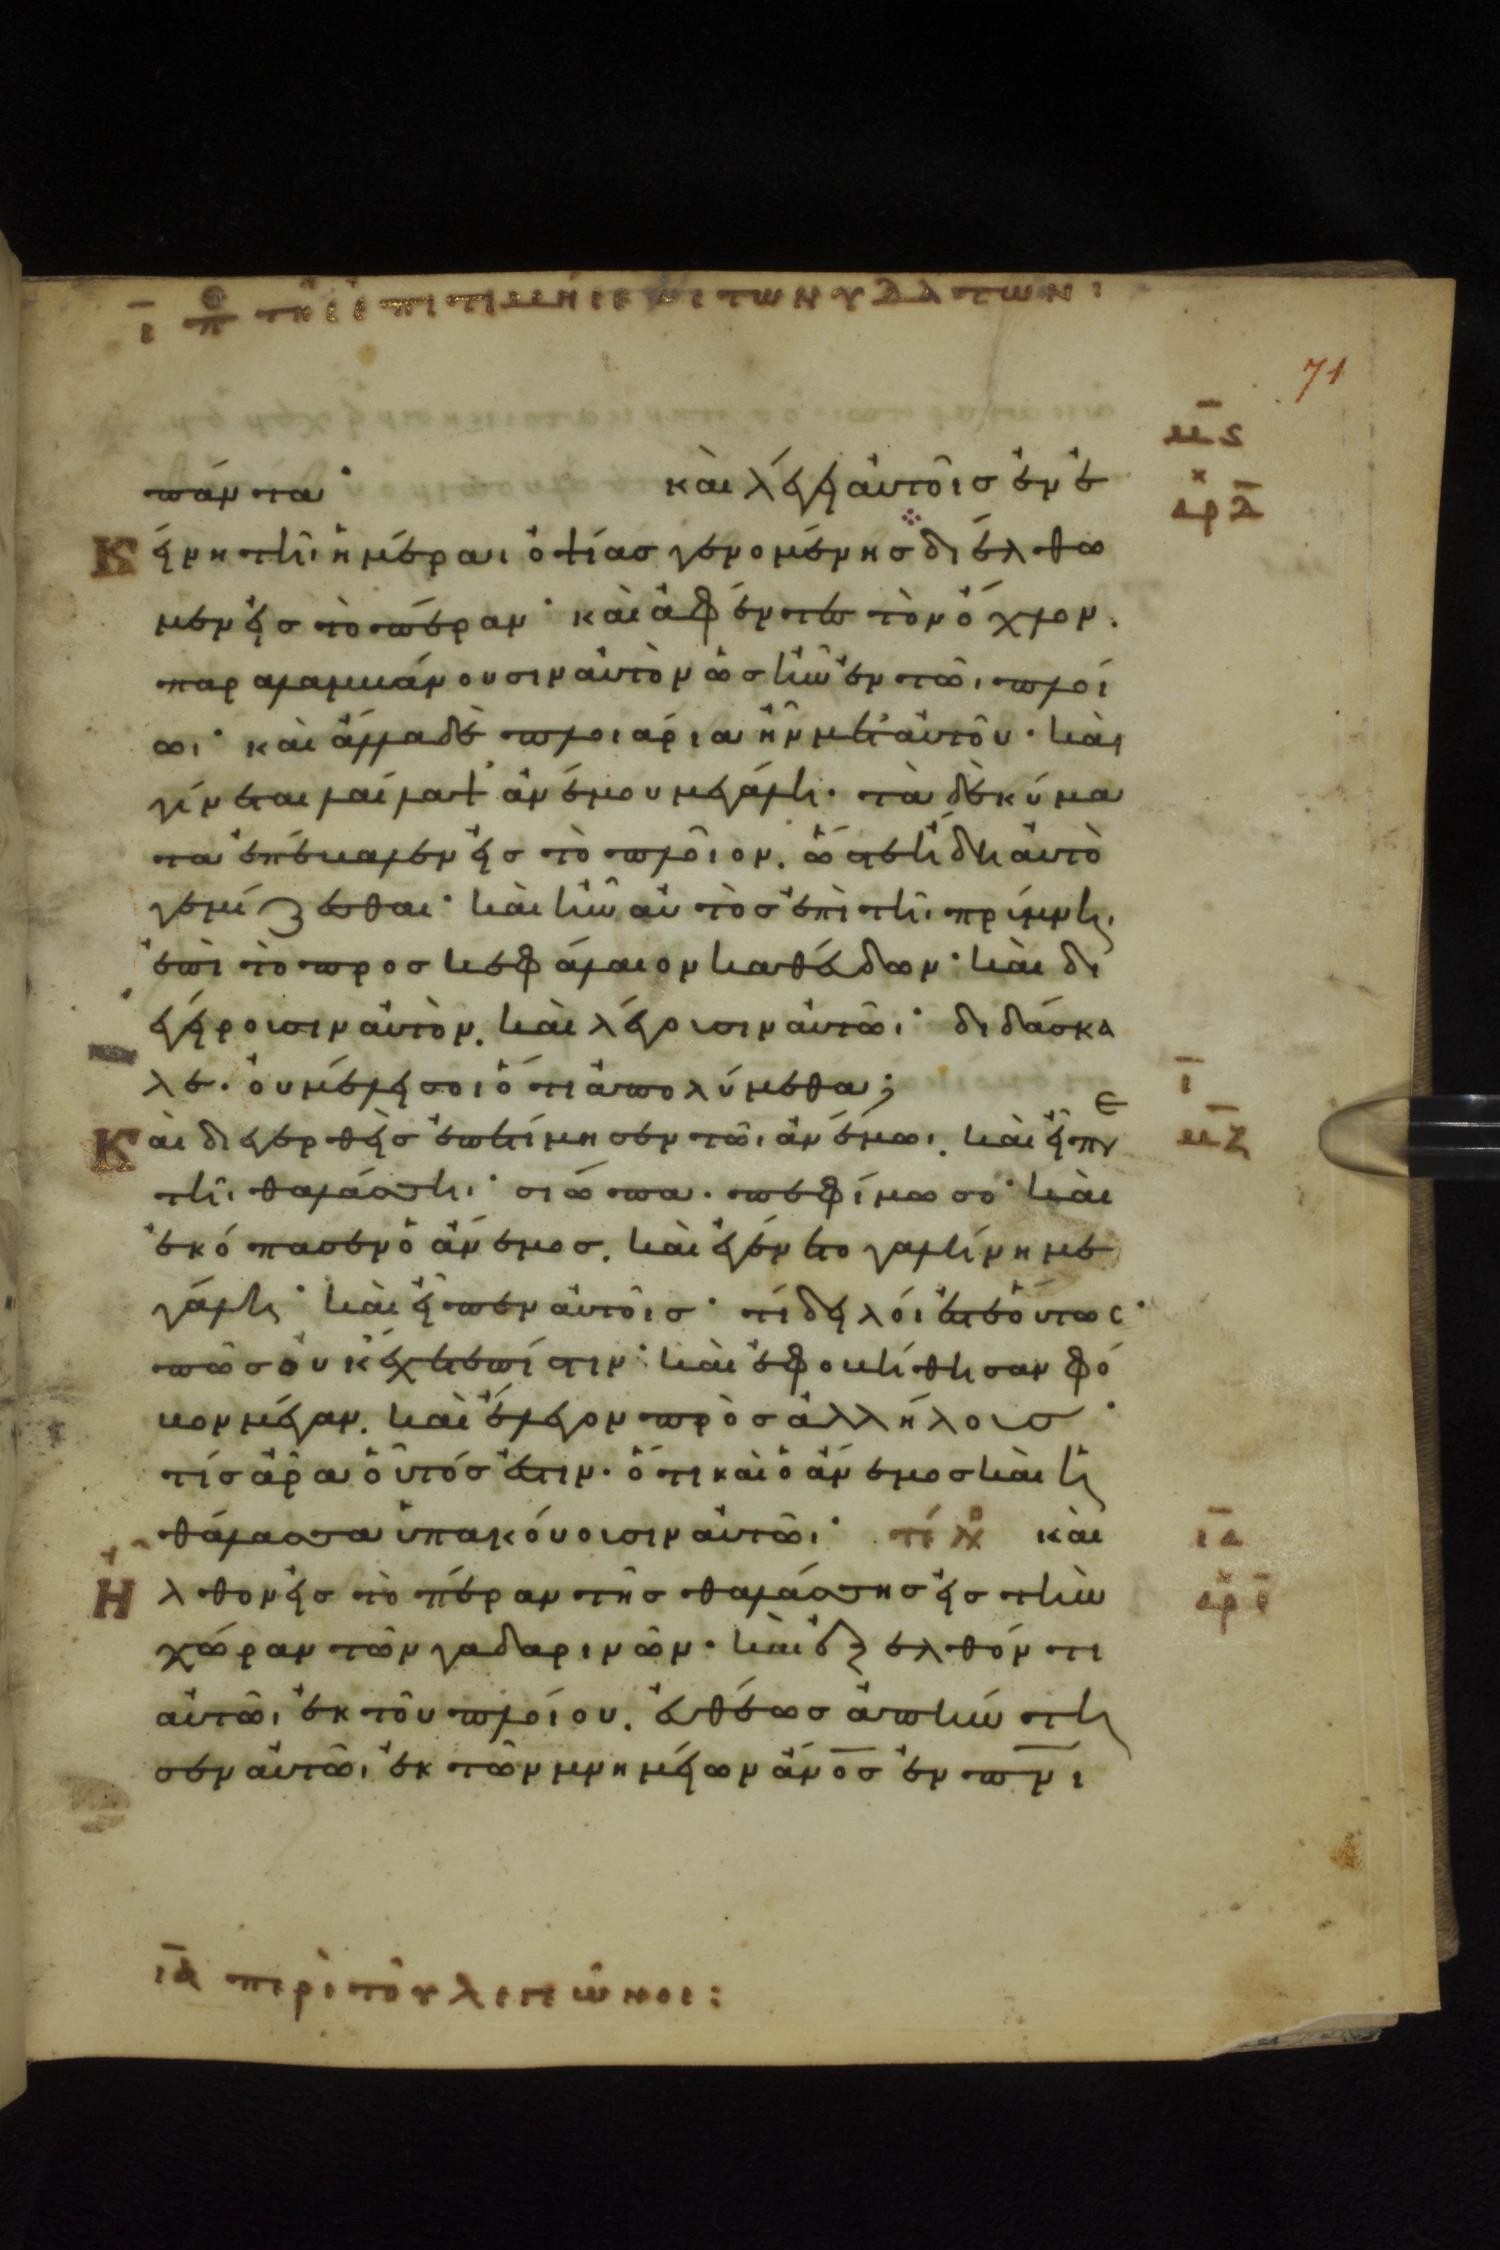 ι̅ περι της επιτιμησεως των υδατων :
71
μ̅ϛ
πάντα· και λέγει αὐτοῖσ ἐν ἐ
δ ρ̅λ̅
Κείνη τῆι ἡμέραι ὀψίας γενομένησ διέλθω
μεν εἰσ τὸ πέραν· καὶ ἀφέντεσ τὸν ὄχλον.
παραλαμβάνουσιν αὐτὸν ὡσ ἦν ἐν τῶι πλοί
ωι· καὶ ἄλλα δὲ πλοιάρια ἦν μετ' αὐτοῦ· καὶ
γίνεται λαίλαψ ἀνέμου μεγάλη· τὰ δὲ κύμα
τα ἐπέβαλεν εἰσ τὸ πλοῖον. ὥστε ἤδη αὐτὸ
γεμίζεσθαι· καὶ ἦν αὐτὸσ ἐπὶ τῆι πρύμνη
ἐπὶ τὸ προσκεφάλαιον καθεύδων· καὶ δι
εγείρουσιν αὐτὸν. καὶ λέγουσιν αὐτῶι· διδάσκα
λε. οὐ μέλει σοι ὅτι ἀπολύμεθα;
ι̅
Καὶ διεγερθεὶσ ἐπετίμησεν τῶι ἀνέμωι. καὶ εἶπεν
μ̅ζ̅
τῆι θαλάσσηι· σιώπα. πεφίμωσο· καὶ
ἐκόπασεν ὁ ἄνεμοσ. καὶ ἐγένετο γαλήνη με
γάλη· καὶ εἶπεν αὐτοῖσ· τί δειλοί ἐστε οὕτωσ·
πῶσ οὐκ ἔχετε πίστιν· καὶ ἐφοβήθησαν φό
βον μέγαν. καὶ ἔλεγον πρὸσ ἀλλήλουσ·
τίσ ἆρα οὗτόσ ἐστιν· ὅτι καὶ ὁ ἄνεμοσ καὶ ἡ
θάλασσα ὑπακούουσιν αὐτῶι· τέλο καὶ
ι̅α̅
Ἦλθον εἰσ τὸ πέραν τῆσ θαλάσσησ εἰσ τὴν
χώραν τῶν γαδαρινῶν· καὶ ἐξελθόντι
αὐτῶι ἐκ τοῦ πλοίου. εὐθέωσ ἀπήντη
σεν αὐτῶι ἐκ τῶν μνημείων ἄν̅ο̅σ̅ ἐν π̅ν̅ι̅
ι̅α̅ περὶ τοῦ λεγεῶνοσ :